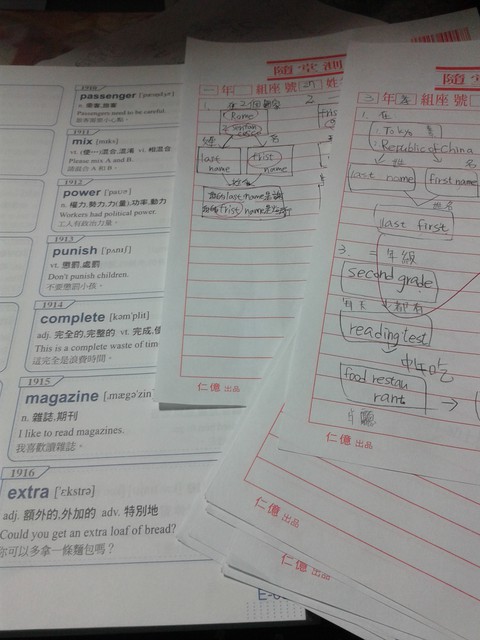 1910
passenger [ˈpæsṇdʒɚ]
n. 乘客,旅客
Passengers need to be careful.
旅客需要小心點。
1911
mix [mɪks]
vt. (使一)混合,混淆 vi. 相混合
Please mix A and B.
請混合 A 和 B。
1912
power [ˈpaʊɚ]
n. 權力,勢力,力(量),功率,動力
Workers had political power.
工人有政治力量。
1913
punish [ˈpʌnɪʃ]
vt. 懲罰,處罰
Don't punish children.
不要懲罰小孩。
1914
complete [kəmˈplit]
adj. 完全的,完整的 vt. 完成,使
This is a complete waste of tim
這完全是浪費時間。
1915
magazine [ˌmægəˈzin]
n. 雜誌,期刊
I like to read magazines.
我喜歡讀雜誌。
1916
extra [ˈɛkstrə]
adj. 額外的,外加的 adv. 特別地
Could you get an extra loaf of bread?
你可以多拿一條麵包嗎？
隨堂測
一年 組座號 27 姓
1.
2
last name
frist name
仁億 出品
隨堂
三年 孝 組座號
1. 在
Republic of China
姓 名
last name
first name
last first
3. 二年級
second grade
每天
reading test
中午吃
food restau
rant
→
仁億 出品
仁億 出品
仁億 出品